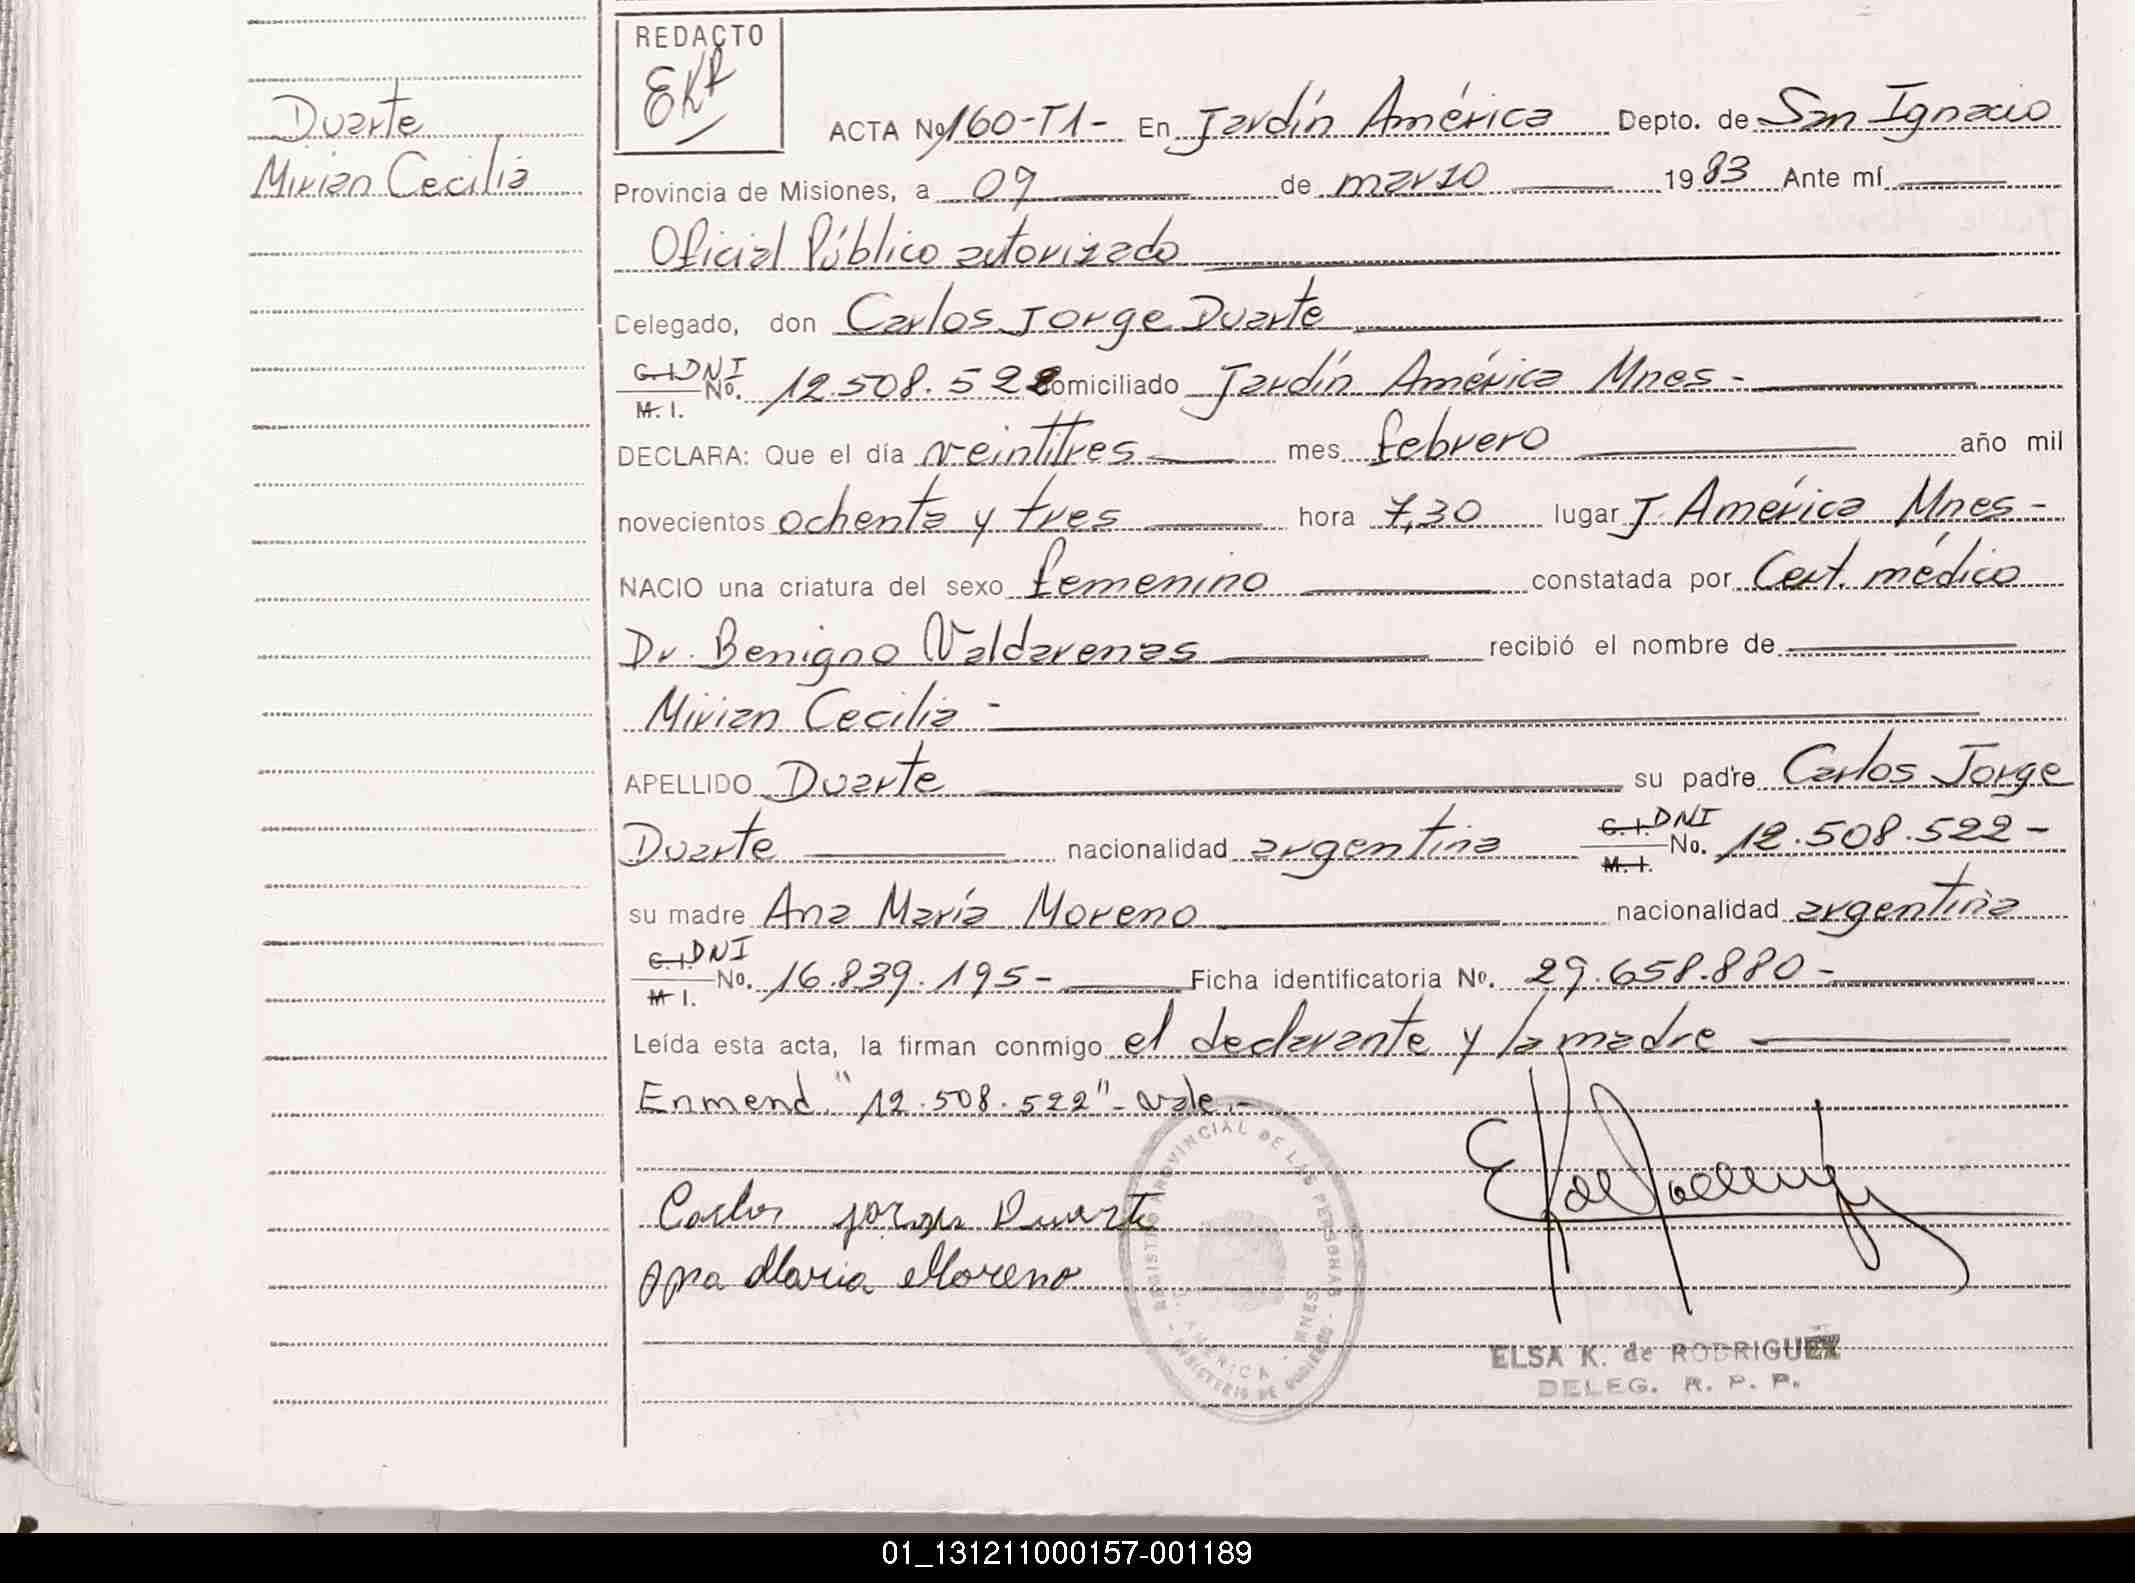 Duarte
Mirian Cecilia
REDACTO
EKR
ACTA Nº 160-T1- En Jardín América Depto. de San Ignacio
Provincia de Misiones, a 09 de marzo 1983 Ante mí
Oficial Público autorizado
Celegado, don Carlos Jorge Duarte
C.I. DNI
M. I. No. 12.508.522 domiciliado Jardín América Mnes-
DECLARA: Que el día veintitres mes febrero año mil
novecientos ochenta y tres hora 7,30 lugar J. América Mnes-
NACIO una criatura del sexo femenino constatada por Cert. médico
Dr. Benigno Valdarenas recibió el nombre de
Mirian Cecilia-
APELLIDO Duarte su padre Carlos Jorge
Duarte nacionalidad argentina C.I. DNI M. I. No. 12.508.522-
su madre Ana María Moreno nacionalidad argentina
C.I. DNI
M I. No. 16.839.195- Ficha identificatoria No. 29.658.880-
Leída esta acta, la firman conmigo el declarante y la madre
Enmend "12.508.522"- vale.-
Carlos Jorge Duarte
Ana Maria Moreno
REGISTRO PROVINCIAL DE LAS PERSONAS
J. AMERICA - MNES.
MINISTERIO DE GOBIERNO
ELSA K. de RODRIGUEZ
DELEG. R. P. P.
01_131211000157-001189